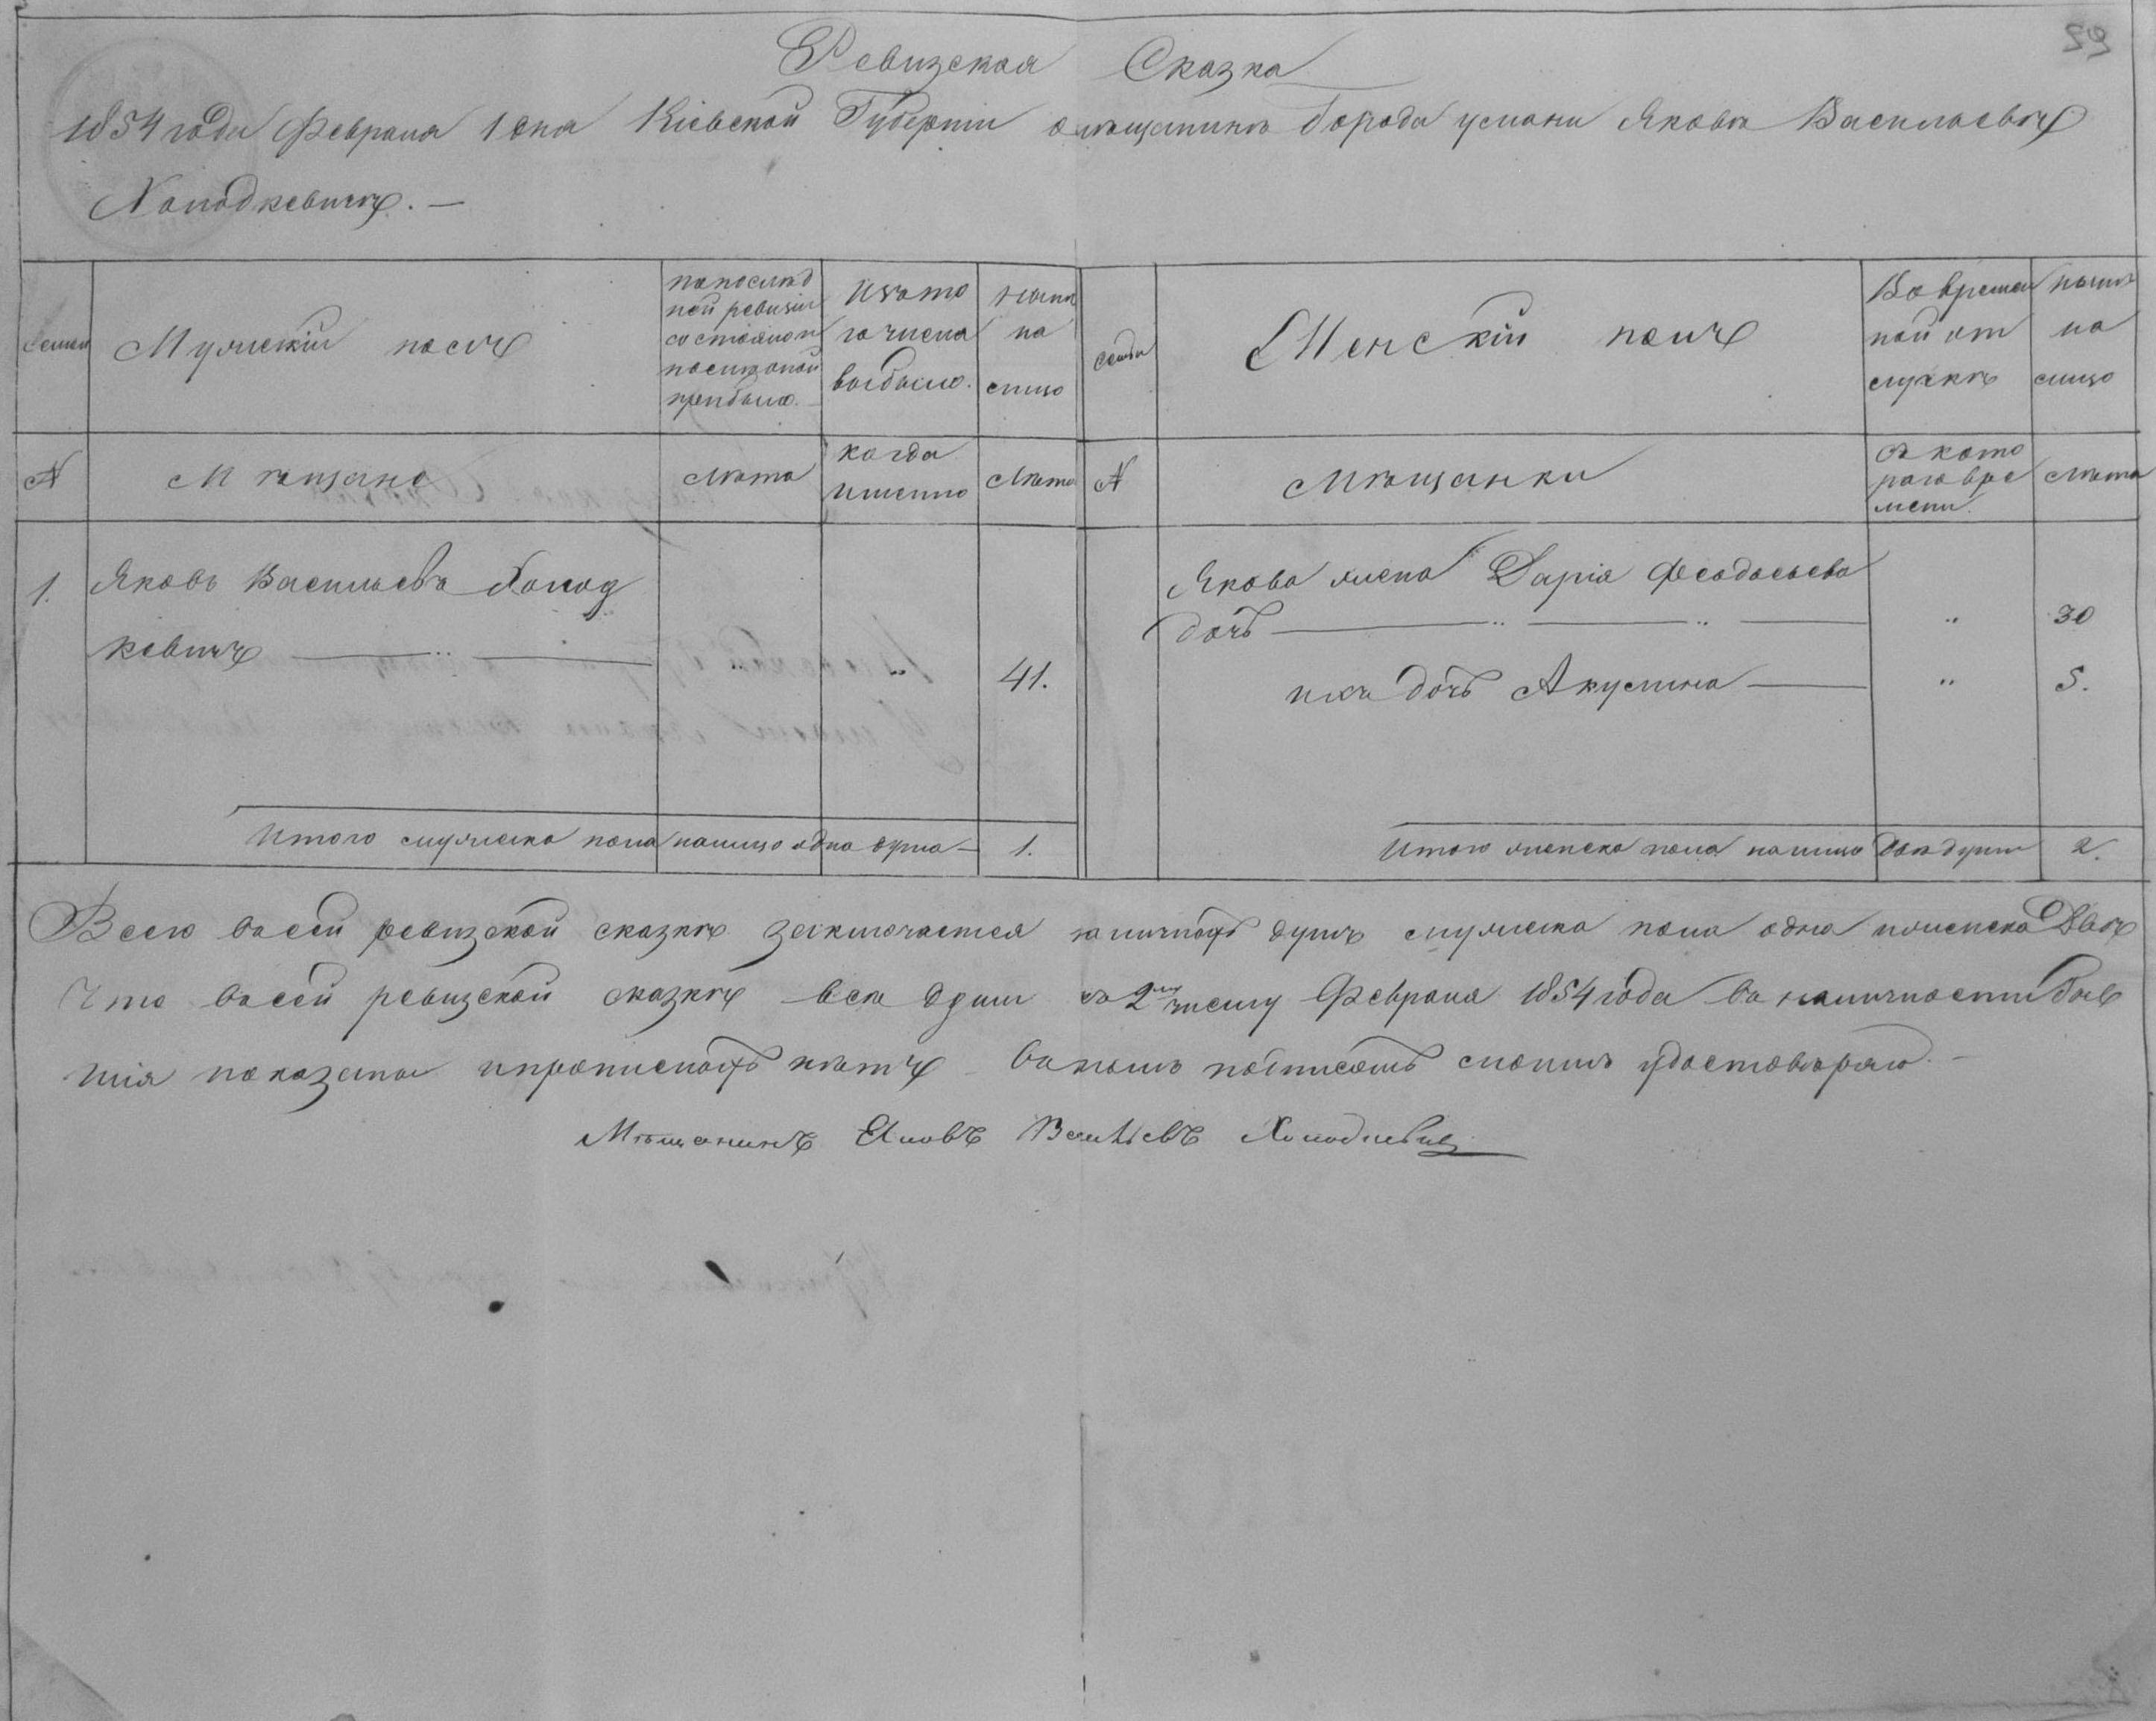 Ревизская Сказка
1854 года Февраля 1 дня Кіевской Губерніи о мѣщанинѣ Города Умани Яковѣ Васильевѣ
Холодкевичѣ. —
семьи
Мужескій полъ
по послѣд
ней ревизіи
состояло и
послѣ оной
прибыло.
Изъ то
го числа
выбыло.
Нынѣ
на
лицо
семьи
Женскій полъ
Во времен
ной от
лучкѣ
нынѣ
на
лицо
№
Мѣщане
Лѣта
когда
именно
Лѣта
№
Мѣщанки
съ кото
раго вре
мени.
Лѣта
1.
Яковъ Васильевъ Холод
кевичъ — „ —
„
41.
Якова жена Дарія Феодосьева
дочь — „ — „ —
„
30
ихъ дочь Акулина —
„
5.
Итого мужеска пола на лицо одна душа — 1.
Итого женска пола на лицо двѣ души 2.
Всего въ сей ревизской сказкѣ заключается наличныхъ душъ мужеска пола одна и женска Двѣ
Что въ сей ревизской сказкѣ все души къ 2му числу Февраля 1854 года въ наличности быв
шія показаны и прописныхъ нѣтъ въ томъ подписомъ своимъ удостовѣряю. —
Мѣщанинъ Яковъ Васильевъ Холодкевич